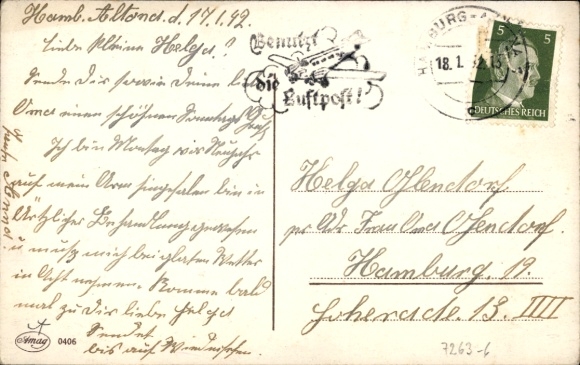 Hamb. Altona d. 17.1.42.
Liebe kleine Helga!
Sende Dir sowie Deine
Oma einen schönen Sonntags
Ich bin Montag vor Neujahr
auf mein Arm hingefallen bin in
Ärztlicher Behandlung gewesen
u muß mich bei glatten Wetter
in Acht nehmen. Komme bald
mal zu Dir liebe Helga
Sendet
bis auf Wiedersehen.
Benutzt
die
Luftpost!
HAMBURG-
18.1.
5 5
DEUTSCHES REICH
Helga Ohlendorf
per Adr. Frau Oma Ohlendorf.
Hamburg. 19.
13 IIII
Amag 0406
7263-6